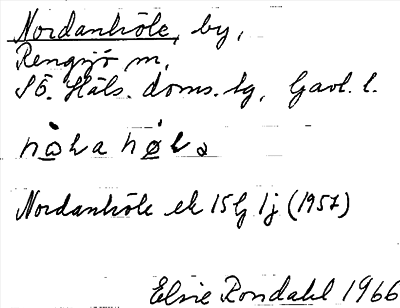 Nordanhöle, by,
Rengsjö m,
SÖ. Häls. doms. sg, Gävl. l.
Nordanhöle ek 15G 1j (1957)
Elsie Rondahl 1966